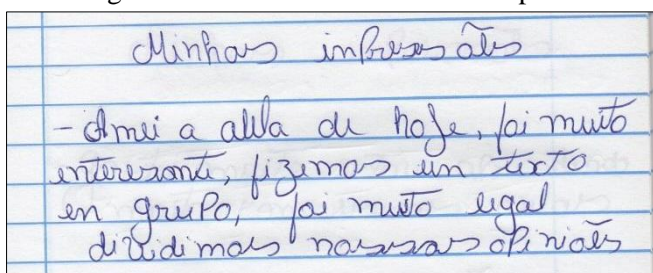 Minhas inpresões
- Amei a aula de hoje, foi muito
interesante, fizemos un texto
en grupo, foi muito legal
dividimos nossas opiniões